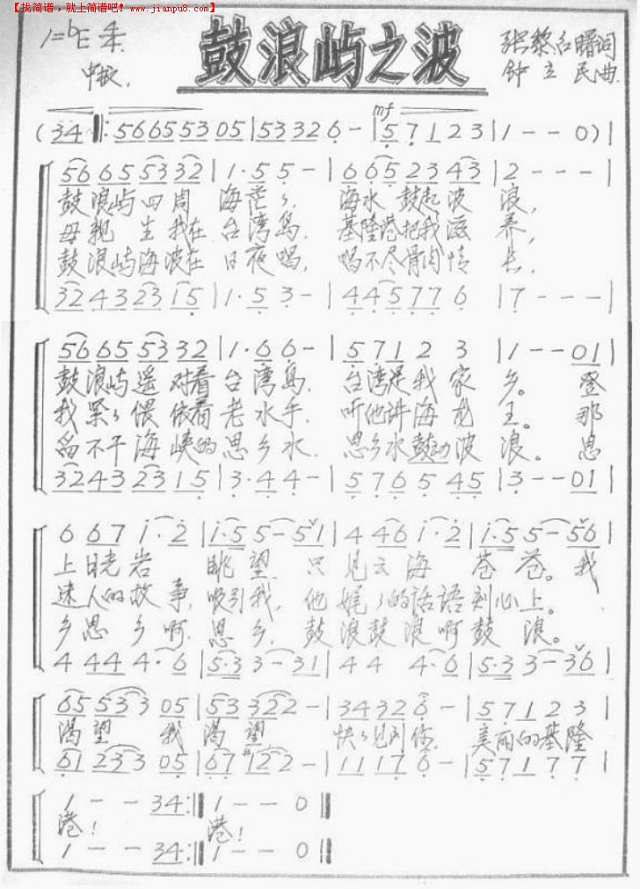 【找简谱，就上简谱吧！ www.jianpu8.com】
鼓浪屿之波
1=bE 4/4
中板.
张黎 红曙词
钟立民曲.
mf
(34 ‖: 56655305 | 53326- | 57123 | 1--0) |
566553332 | 1·55- | 6652343 | 2--- |
鼓浪屿四周 海茫々 海水鼓起波浪,
母亲生我在台湾岛, 基隆港把我滋养,
鼓浪屿海波在日夜唱, 唱不尽骨肉情长,
3243 2315 | 1·53- | 445776 | 7--- |
5665 5332 | 1·66- | 57123 | 1--01 |
鼓浪屿遥对着台湾岛, 台湾是我家乡。登
我紧々偎依着老水手, 听他讲海龙王。那
舀不干海峡的思乡水, 思乡水鼓动波浪。思
3243 2315 | 3·44- | 576545 | 3--01 |
6 67 1·2 | 1·55-51 | 4 46 1·2 | 1·55-56 |
上日光岩 眺望, 只见云海苍苍。我
迷人的故事, 吸引我, 他娓々的话语刻心上。
乡思乡啊, 思乡, 鼓浪鼓浪啊鼓浪。
4 44 4·6 | 5·33-31 | 44 4·6 | 5·33-36 |
6553305 | 53322- | 34326- | 57123 |
渴望 我渴望 快々见到你, 美丽的基隆
6123305 | 67122- | 11176- | 57177 |
1--34:‖ 1--0 ‖
港! 港!
1--34:‖ 1--0 ‖